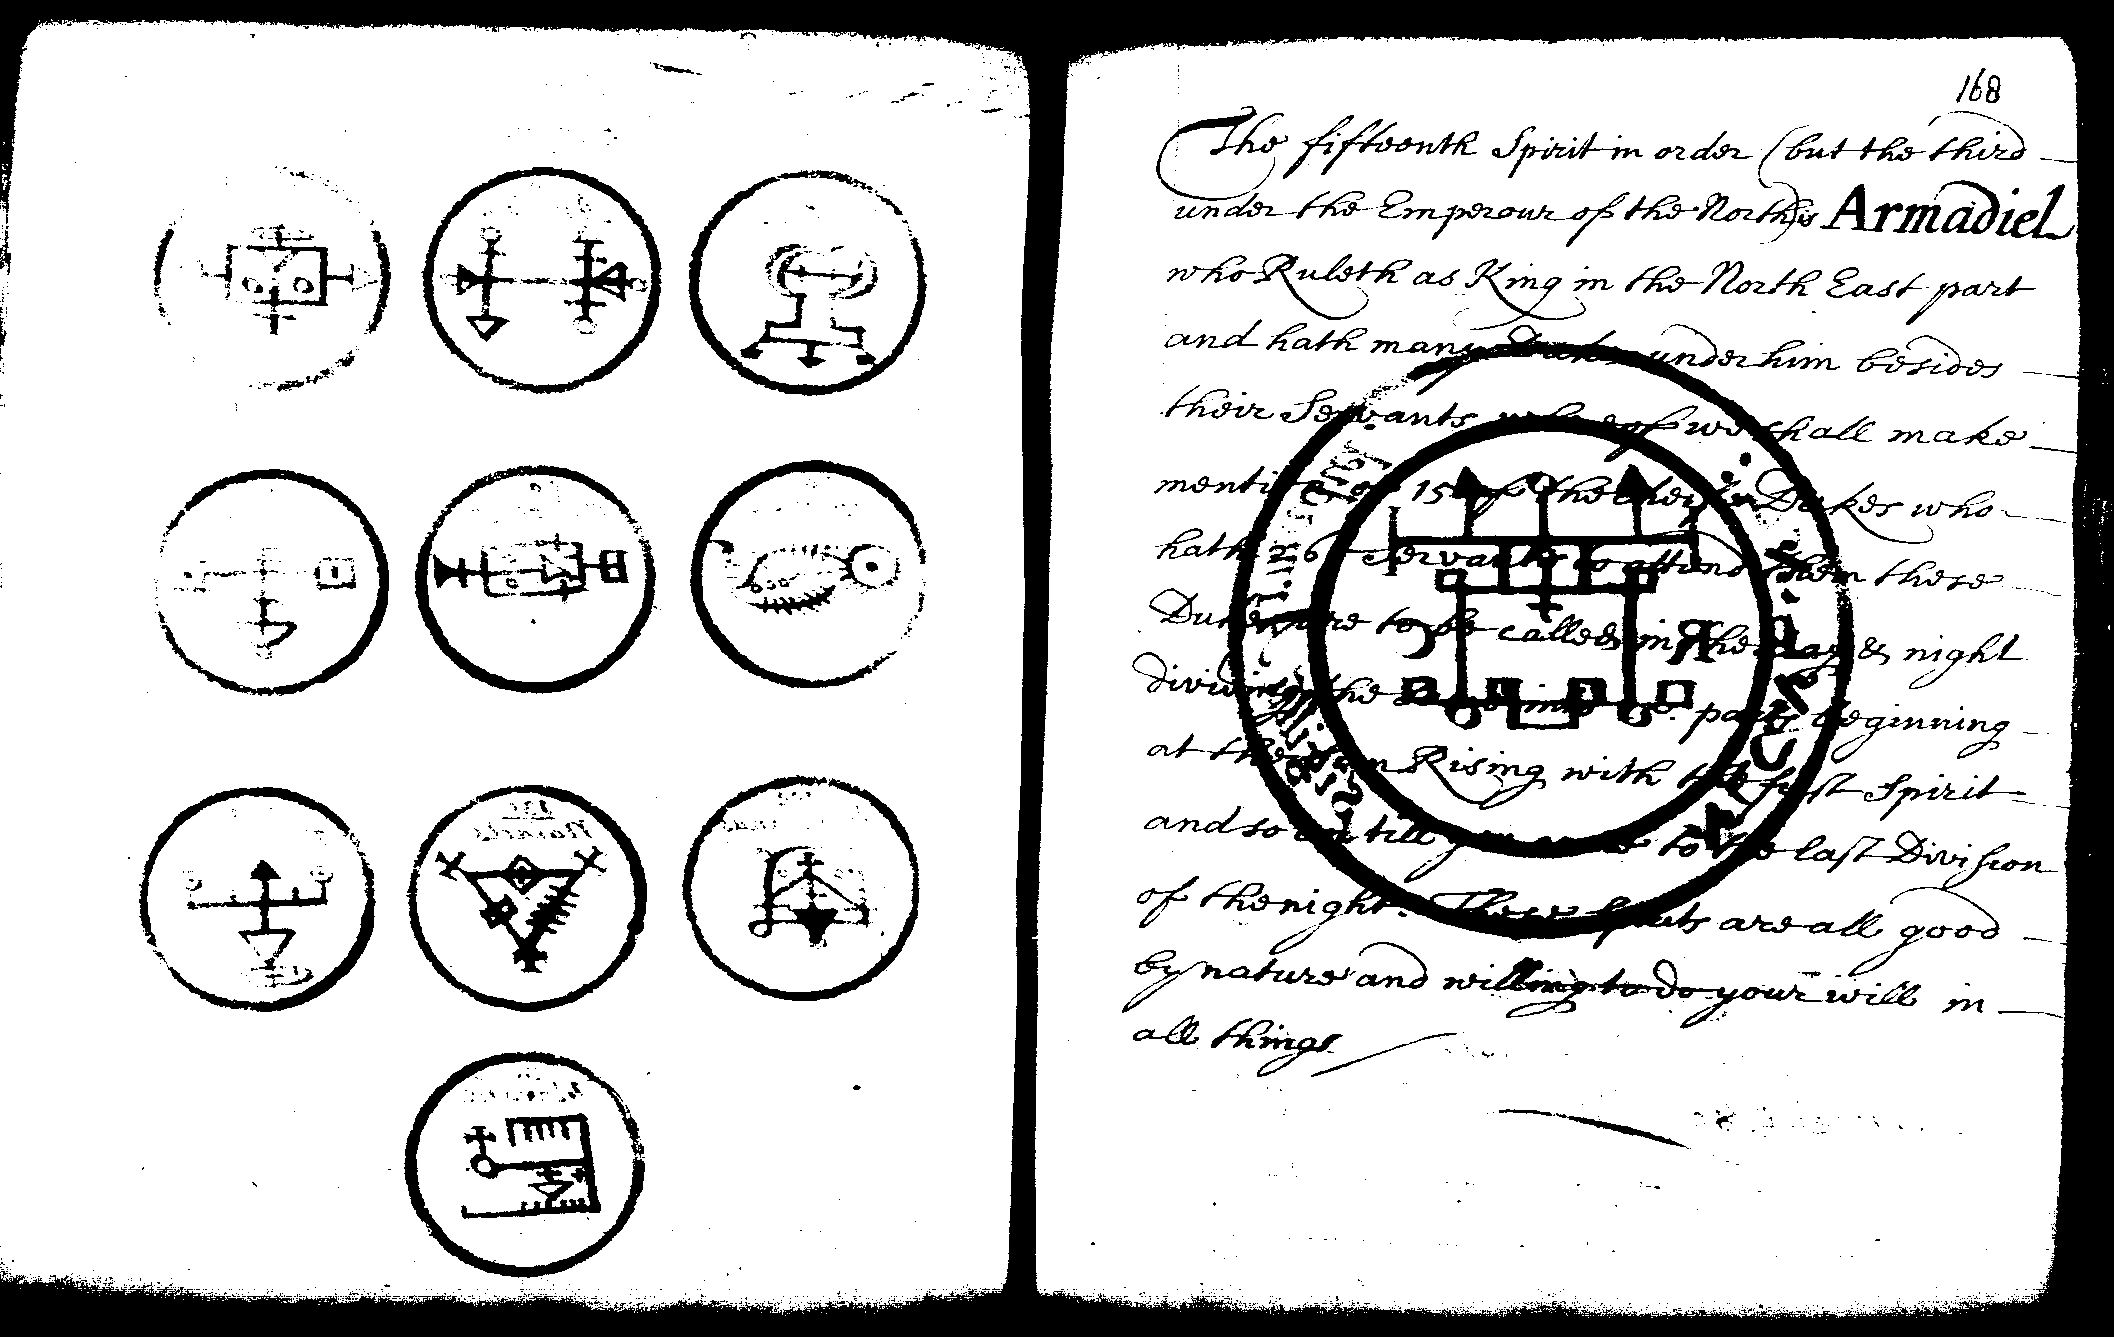 168
The fifteenth Spirit in order (but the third
under the Emperour of the North) is Armadiel
who Ruleth as King in the North East part
and hath many Dukes under him besides
their Servants whereof we shall make
mention of 15 of the cheife Dukes who
hath servants to attend them these
Dukes are to be called in the day & night
dividing the same into 15 parts beginning
at the Sun Rising with the first Spirit
and so on till you come to the last Division
of the night. These Spirits are all good
by nature and willing to do your will in
all things